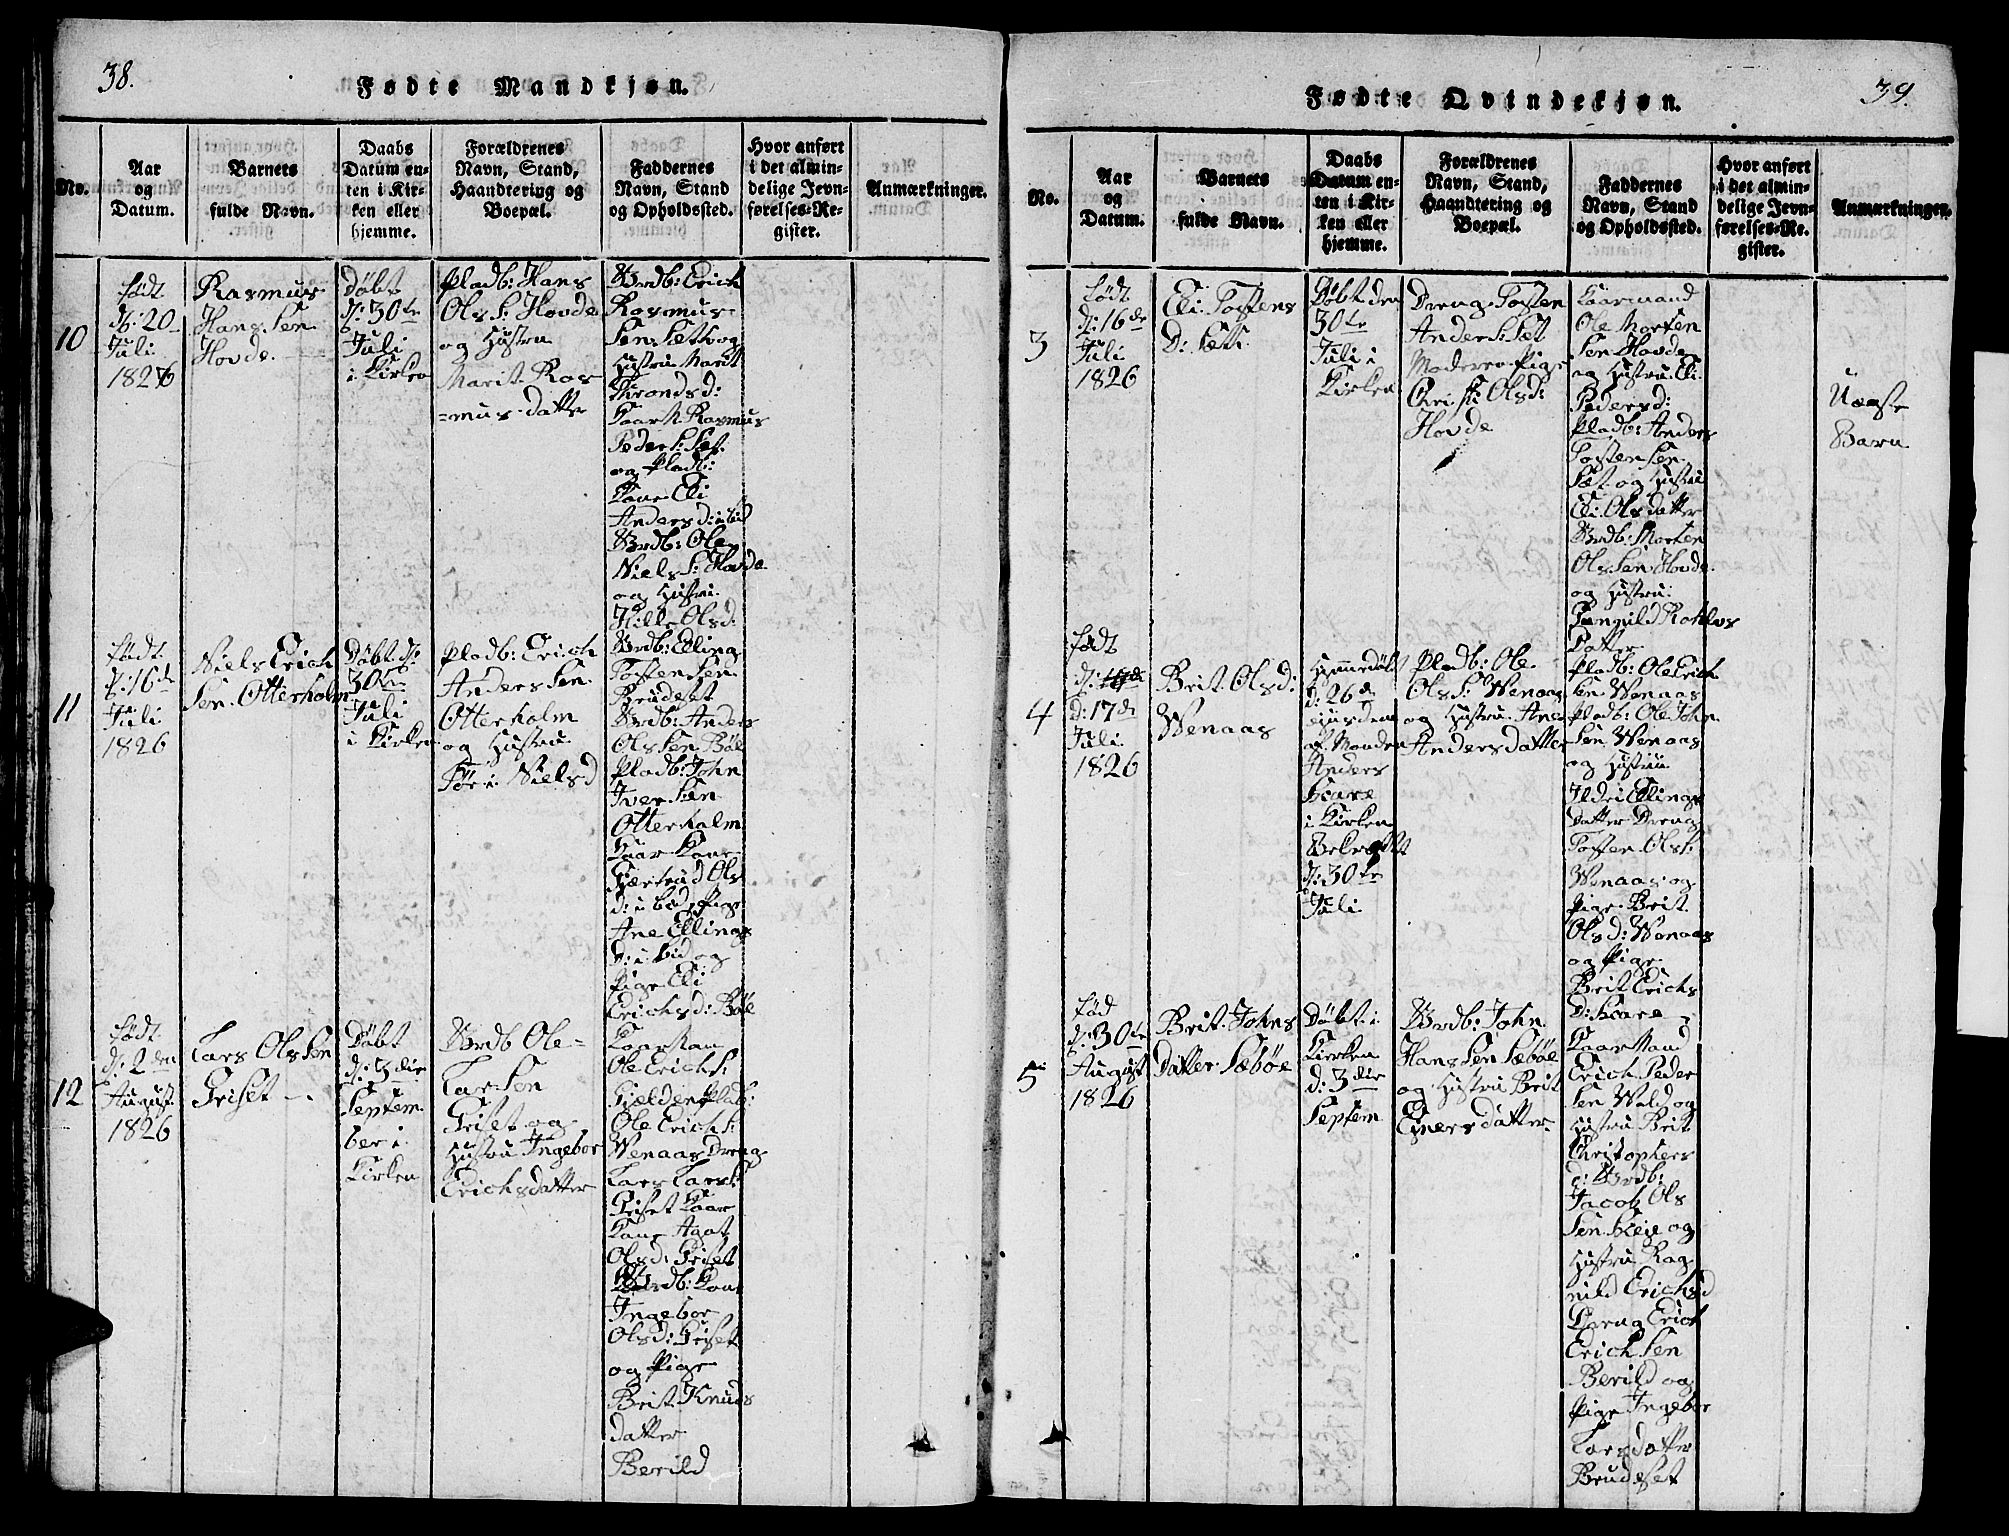 38.
Fødte Mandkjøn.
No.
Aar
og
Datum.
Barnets
fulde Navn.
Daabs
Datum en-
ten i Kir-
ken eller
hjemme.
Forældrenes
Navn, Stand,
Haandtering og
Boepæl.
Faddernes
Navn, Stand
og Opholdssted.
Hvor anført
i det almin-
delige Jevn-
førelses-Re-
gister.
Anmærkninger.
10
født
d: 20
Juli
1826
Rasmus
Hans Sen
Hovde
Døbt
d: 30te
Juli
i Kirken
Pladb: Hans
Ols S: Hovde
og Hustru
Marit Ras
=mus datter
Brdb: Erich
Rasmus
Sen Sætt og
Hustru Marit
Thronds d:
Kaark. Rasmus
Peder S: Sæt
og Pladb:
Kone Eli
Anders d: ibid
Brdb: Ole
Niels S: Hovde
og Hustru
Hille Ols d:
11
født
d: 16de
Juli
1826
Niels Erich
Sen Otterholm
Døbt d:
30te
Juli
i Kirken
Pladb: Erich
Anders Sen
Otterholm
og Hustru
Niels d
Brdb: Elling
Tosten Sen
Brudeset
Brdb: Anders
Ols Sen Bøe
Pladb: John
Iver Sen
Otterholm
Kaar Kone
Gjertrud Ols
d: ibid Pige
Ane Ellings
d: ibid og
Pige Eli
Erichs d: Bøe
12
født
d: 2den
August
1826
Lars Ols Sen
Griset
Døbt
d: 3die
Septem
ber i
Kirken
Brdb Ole
Lar Sen
Griset og
Hustru Ingebor
Erichsdatter
Kaarman
Ole Erichs:
Gjelden Plab:
Ole Erichs:
Wenaas Dreng
Lars Lars:
Griset Kaar
Kone Agat
Ols d: Griset
Brdb: Kone
Ingebor
Ols d: Griset
og Pige
Brit Knuds
datter
Berild
39.
Fødte Qvindekjøn.
No.
Aar
og
Datum.
Barnets
fulde Navn.
Daabs
Datum en-
ten i Kir-
ken eller
hjemme.
Forældrenes
Navn, Stand,
Haandtering og
Boepæl.
Faddernes
Navn, Stand
og Opholdssted.
Hvor anført
i det almin-
delige Jevn-
førelses-Re-
gister.
Anmærkninger.
3
født
d: 16de
Juli
1826
Eli Tostens
D: Sæt
Døbt den
30te
Juli i
Kirken
Dreng Tosten
Anders S: Sæt
Moderen Pige
Christi Olsd:
Hovde
Kaarmand
Ole Morten
Sen Hovde
og Hustru Eli
Peders d:
Pladb: Anders
Tosten Sen
Sæt og Hustru
Eli Olsdatter
Brdb: Morten
Ols Sen Hovde
og Hustru
Datter
Uægte
Barn
4
født
d: 17de
Juli
1826
Brit Olsd:
Wenaas
Hjemmedøbt
d: 26de
ejusdem
af Manden
Anders
Hoare
i Kirken
d: 30te
Juli
Pladb: Ole
Ols S: Wenaas
og Hustru Ane
Andersdatter
Pladb: Ole Erich
Sen Wenaas
Pladb: Ole John
Sen Wenaas
og Hustru
Ildri Ellings
Datter Dreng
Tosten Ols:
Wenaas og
Pige Brit
Ols d: Wenaas
og Pige
Brit Erichs
D: Hoare
5
fød
d: 30te
August
1826
Brit Johns
Datter Sæbøe
Døbt i
Kirken
d: 3die
Septem
Brdb: John
Hans Sen Sæbøe
og Hustru Brit
Einersdatter
Kaarmand
Erich Peder
Sen Wold og
Hustru Brit
Christophers
d: Brdb:
Jacob Ols
Sen Skeie og
Hustru Rag
nild Erichsd
Dreng Erich
Erich Sen
Berild og
Pige Ingebor
Larsdatter
Brudeset